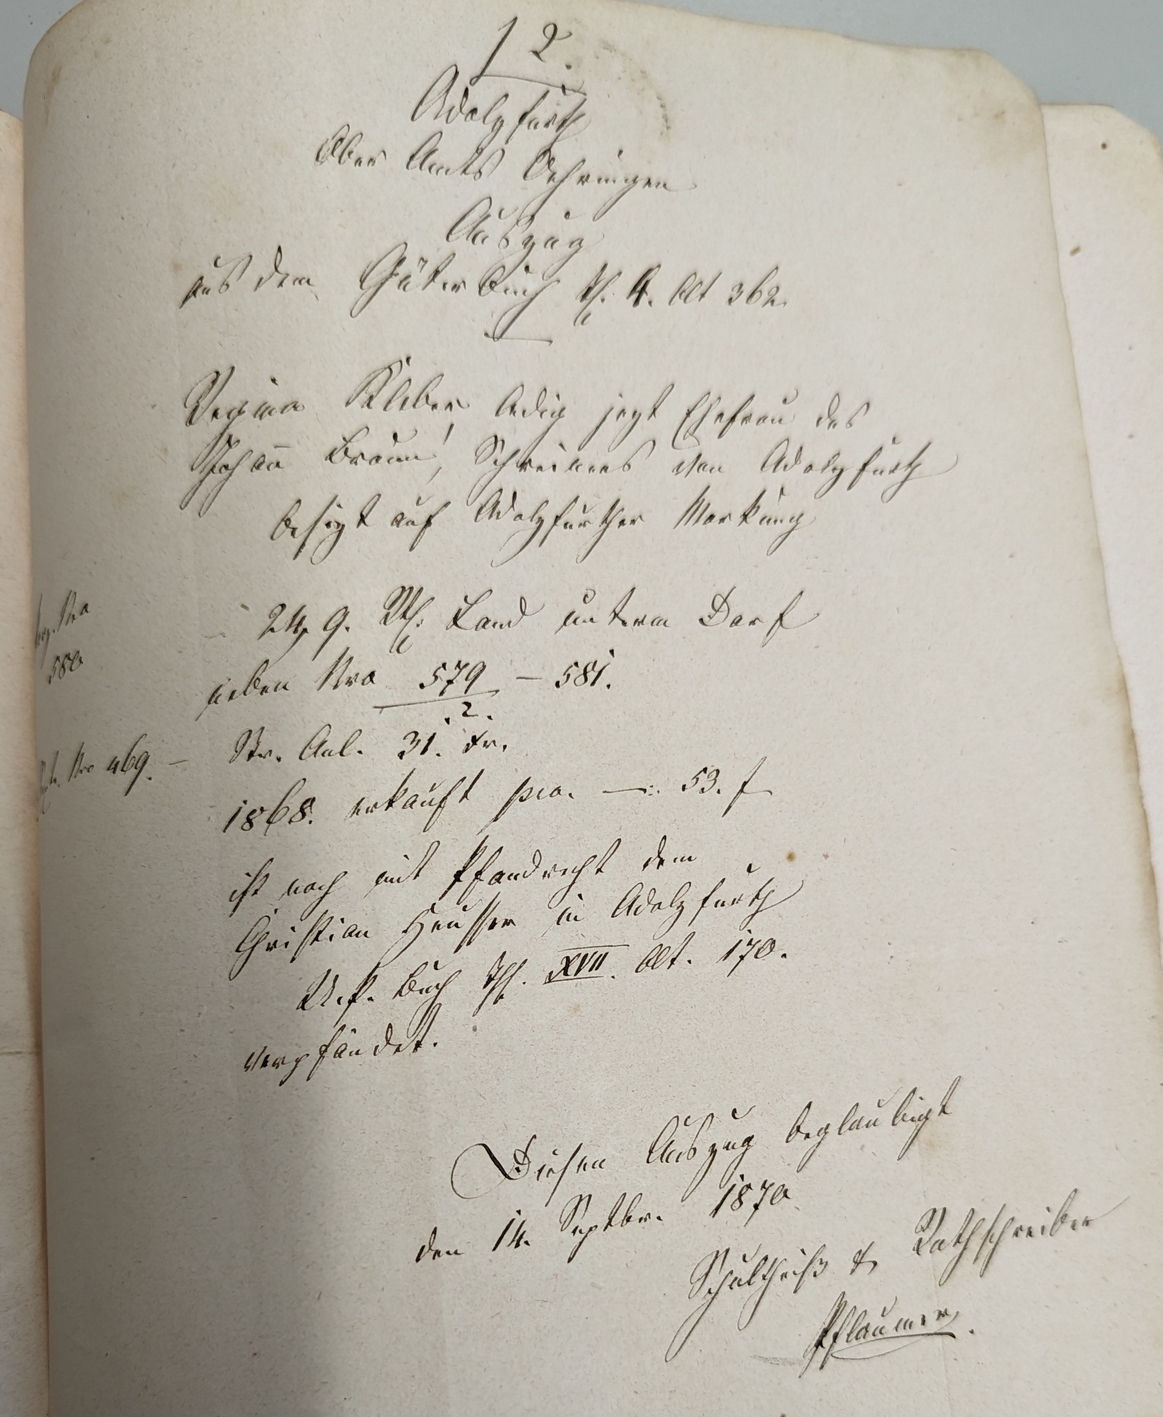 12.
Adolzfurth
Ober Amts Oehringen
Auszug
aus dem Güterbuch Th. 4. Blt 362.
Regina Kleber ledig jezt Ehefrau des
Johann Braun, Schreiners von Adolzfurth
besizt auf Adolzfurther Markung
24,9. Rth. Land unterm Dorf
Nro
580
neben Nro 579/2. – 581.
Nro 469. –
Str. Anl. 31. xr.
1868. erkauft pro. — 53. f
ist noch mit Pfandrecht dem
Christian Heusser in Adolzfurth
U. P. Buch Th. XVII. Blt. 170.
verpfändet.
Diesen Auszug beglaubigt
den 14. Septbr. 1870.
Schultheiß & Rathschreiber
Pflaumer.